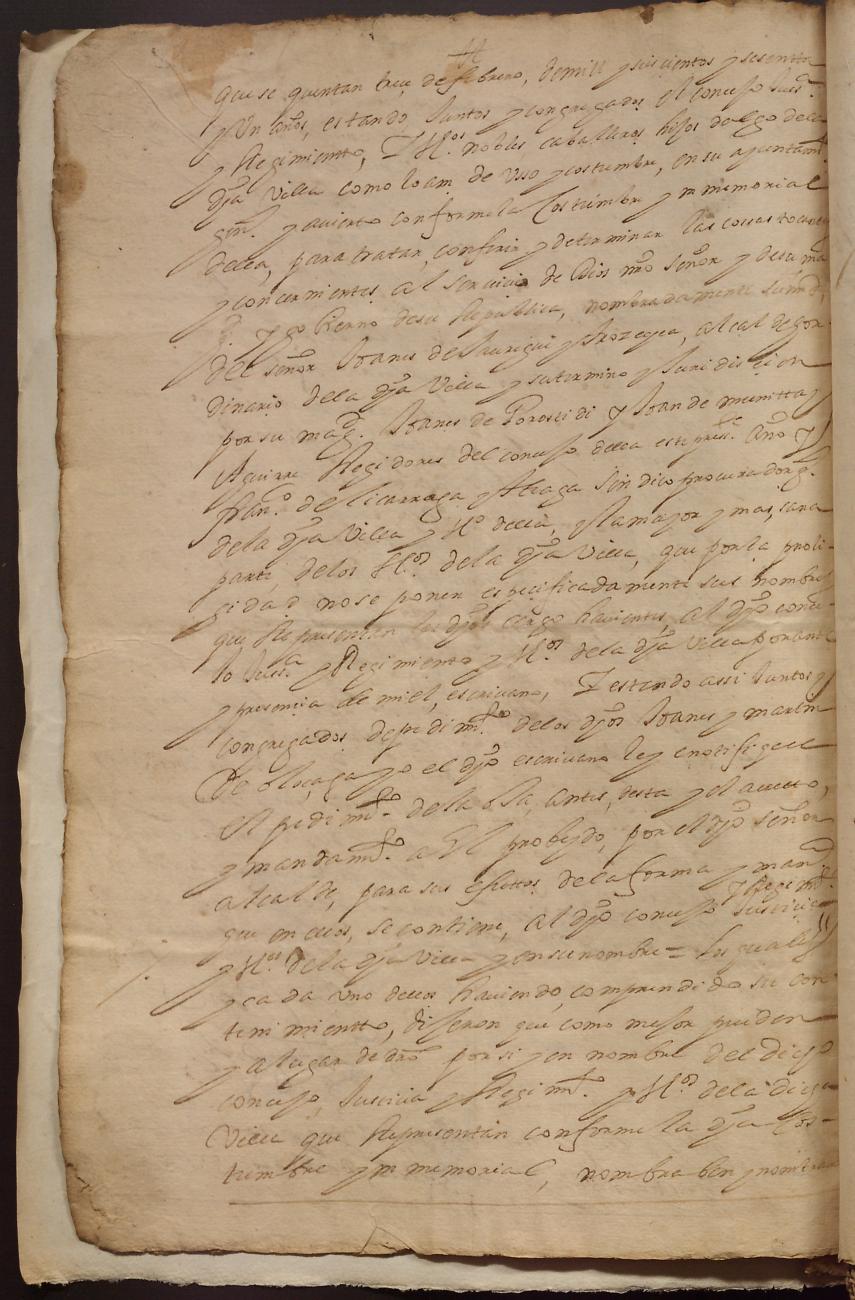 que se quentan trece de febrero, de mill y seiscientos y sesentta
y Un años, estando Juntos y congregados el concejo Justª
y Regimientto, Y Vºs nobles caballeros hijos dalgo de la
dha Villa como loan de Vsso y costumbre, en su ayuntamtº
gnl. y auierto conforme la Costumbre ynmemorial
della, para tratar, conferir y determinar las cossas tocantes
y concernientes al seruicio de Dios nrõ señor y de su mag
d. Y go Vierno de su Republica, nombradamente
del señor Joanes de Jauregui y Arozeyea, alcalde hor
dinario de la dha Villa y su termino y Juridiscion
por su magd. Joanes de Gorostidi Y Joan de munitta y
Aguirre Regidores del concejo della este press.te año Y
fran.co de licarraga y Aliaga sindico procurador g.l
de la dha Villa y Vº della, y la mayor y mas, sana
parte, de los Vºs de la dha Villa, que por la proli
gidad no se ponen espeçificadamente sus nombres
que Representan los dhos cargo hauientes, al dho conce
jo Justª y Regimiento y Vºs de la dha Villa por ante
y presencia de mi el, escriuano, Y estando assi Juntos y
congregados de pedimtº de los dhos Joanes y martin
De oloçaga yo el dho escriuano ley e notifique
el pedimtº de la ota, antes, desta y el aucto,
y mandamtº a El probeydo, por el dho señor
alcalde, para sus efettos de la forma y manª
que en ellos, se contiene, al dho concejo Justicia y Regimtº
y Vºs de la dha Villa y en su nombre = los quales
y cada Uno dellos hauiendo, comprendido su con
tenimientto, dijeron que como mejor pueden
y a lugar de drõ por si y en nombre del dicho
concejo, Justicia y Regimtº y Vºs de la dicha
Villa que Representan conforme la dha cos
tumbre ynmemorial, nombraben y nombraron